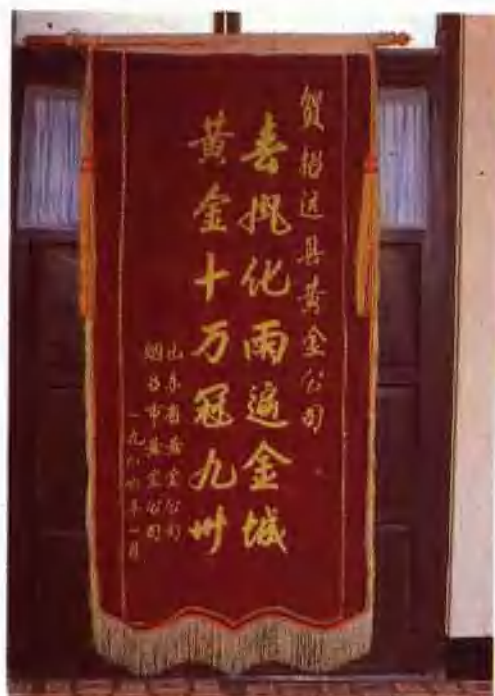 贺招远县黄金公司
春风化雨遍金城
黄金十万冠九州
山东省黄金公司
烟台市黄金公司
一九八六年一月